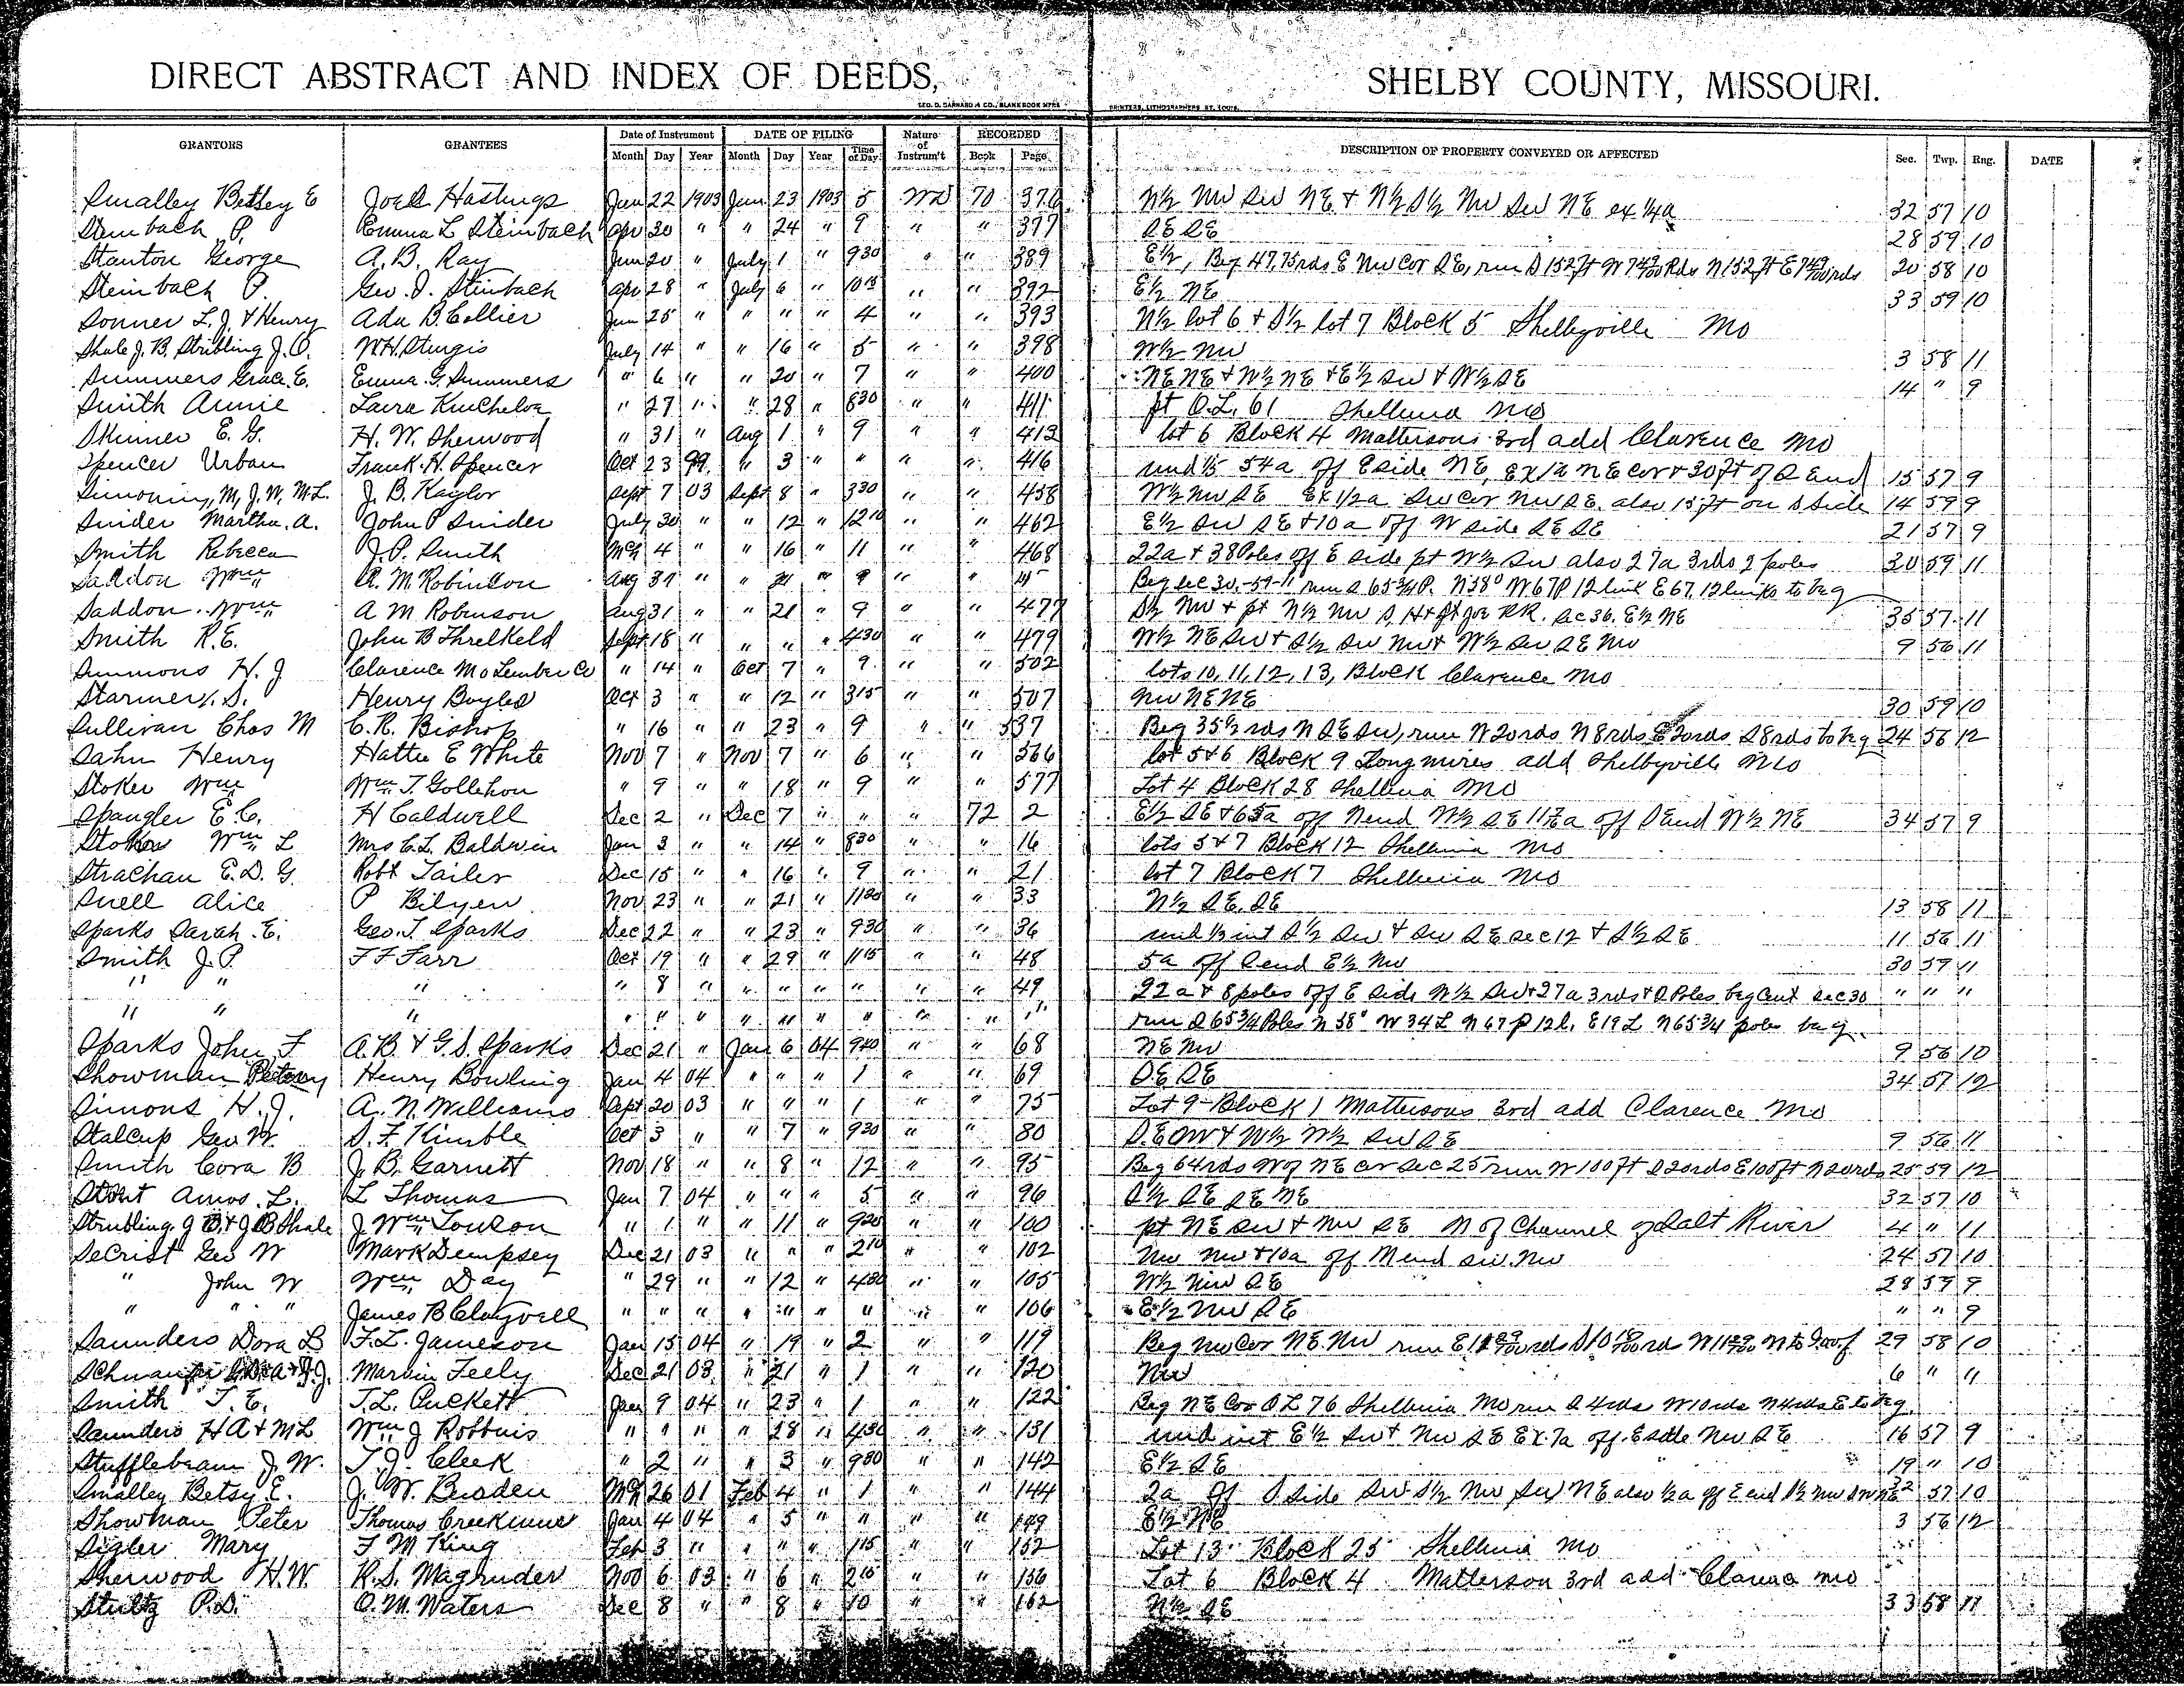 DIRECT ABSTRACT AND INDEX OF DEEDS, SHELBY COUNTY, MISSOURI.
GEO. D. BARNARD & CO., BLANK BOOK MFRS PRINTERS, LITHOGRAPHERS ST. LOUIS.
GRANTORS GRANTEES Date of Instrument DATE OF FILING Nature of Instrum't RECORDED DESCRIPTION OF PROPERTY CONVEYED OR AFFECTED Sec. Twp. Rng. DATE
Month Day Year Month Day Year Time of Day Book Page
Smalley Betsey E Joe D Hastings Jun 22 1903 Jun 23 1903 5 WD 70 376 N½ NW SW NE & N½ S½ NW SW NE ex ¼a 32 57 10
Steinbach P. Emma L Steinbach Apr 30 " " 24 " 9 " " 377 SE SE 28 59 10
Stanton George A. B. Ray Jun 20 " July 1 " 930 " " 389 E½, Beg 47.75rds E NW Cor SE, run S 152ft W 7 49/100 Rds N 152 ft E 7 49/100 rds 20 58 10
Steinbach P. Geo. J. Steinbach Apr 28 " July 6 " 1015 " " 392 E½ NE 33 59 10
Sonner L. J. & Henry Ada B. Collier Jun 25 " " " " 4 " " 393 N½ lot 6 & S½ lot 7 Block 5 Shelbyville Mo
Shale J. B, Stribling J. O. W. H. Sturgis July 14 " " 16 " 5 " " 398 W½ NW 3 58 11
Summers Grace. E. Emma G. Summers " 6 " " 20 " 7 " " 400 NE NE & W½ NE & E½ SW & W½ SE 14 " 9
Smith Annie Laura Kincheloe " 27 " " 28 " 830 " " 411 pt O.L. 61 Shelbina Mo
Skinner E. G. H. W. Sherwood " 31 " Aug 1 " 9 " " 413 lot 6 Block 4 Mattersons 3rd add Clarence Mo
Spencer Urban Frank. H. Spencer Oct 23 99 " 3 " " " " 416 und 1/5 54a off E side NE, Ex 1a NE cor & 30ft of S End 15 57 9
M, J. W, M. L. J. B. Kaylor Sept 7 03 Sept 8 " 330 " " 458 W½ NW SE Ex 1/2a SW Cor NW SE. also 15ft on S Side 14 59 9
Snider Martha. A. John P Snider July 30 " " 12 " 1210 " " 462 E½ SW SE & 10a off W side SE SE 21 57 9
Smith Rebecca J. P. Smith Mch 4 " " 16 " 11 " " 468 22a & 38 Poles off E side pt W½ SW also 27a 3rds 2 poles 30 59 11
Saddon Wm A. M. Robinson Aug 31 " " 21 " 9 " " Beg Sec 30.-59-11 run S 65¾ P. N 38° W 67P 12 link E 67, 12 links to beg
Saddon Wm A M Robinson Aug 31 " " 21 " 9 " " 477 S½ NW & pt N½ NW S. H & St Joe RR. Sec 36. E½ NE 35 57 11
Smith R. E. John B Threlkeld Sept 18 " " " " 430 " " 479 W½ NE SW & S½ SW NW & W½ SW SE NW 9 56 11
Simmons H. J Clarence Mo Lumber Co " 14 " Oct 7 " 9 " " 502 lots 10, 11, 12, 13, Block Clarence Mo
Starmer S. Henry Boyles Oct 3 " " 12 " 315 " " 507 NW NE NE 30 59 10
Sullivan Chas M C. R. Bishop " 16 " " 23 " 9 " " 537 Beg 35½ rds N SE SW, run W 20rds N 8rds E 20rds S 8rds to beg 24 56 12
Sahn Henry Hattie E White Nov 7 " Nov 7 " 6 " " 566 lot 5 & 6 Block 9 Longmires add Shelbyville Mo
Stoker Wm Wm T. Gollehon " 9 " " 18 " 9 " " 577 Lot 4 Block 28 Shelbina Mo
Spangler E. C. H Caldwell Dec 2 " Dec 7 " " " 72 2 E½ SE & 65a off N end W½ SE off S End W½ NE 34 57 9
Stoker Wm L Mrs C. L. Baldwin Jan 3 " " 14 " 830 " " 16 lots 5 & 7 Block 12 Shelbina Mo
Strachan E. D. G. Robt Tailer Dec 15 " " 16 " 9 " " 21 lot 7 Block 7 Shelbina Mo
Snell Alice P Bilyeu Nov 23 " " 21 " 1130 " " 33 N½ SE. SE 13 58 11
Sparks Sarah. E. Geo. T. Sparks Dec 22 " " 23 " 930 " " 36 und 1/3 int S½ SW & SW SE Sec 12 & S½ SE 11 56 11
Smith J. P. F F Farr Oct 19 " " 29 " 1115 " " 48 5a off S end E½ NW 30 59 11
" " " " 8 " " " " " " " 49 22a & 8 poles off E side W½ SW & 27a 3rds & 2 Poles beg Cent Sec 30 " " "
" " " " " " " " " " " " " run S 65¾ Poles N 38° W 34 L N 67 P 12 l. E 19 L N 65¾ poles beg.
Sparks John F A. B. & G. S. Sparks Dec 21 " Jan 6 04 940 " " 68 NE NW 9 56 10
Showman Henry Bowling Jan 4 04 " " " 1 " " 69 SE SE 34 57 12
Simons H. J. A. N. Williams Sept 20 03 " " " 1 " " 75 Lot 9 Block 1 Mattersons 3rd add Clarence Mo
Stalcup Geo W. S. F. Kimble Oct 3 " " 7 " 930 " " 80 SE NW & W½ W½ SW SE 9 56 11
Smith Cora B J. B. Garnett Nov 18 " " 8 " 12 " " 95 Beg 64rds W of NE cor Sec 25 run W 100 ft S 20rds E 100ft N 20rds 25 59 12
Stout Amos. L. L Thomas Jan 7 04 " " " 5 " " 96 S½ SE SE NE 32 57 10
Stribling J O & J B Shale J. Wm Towson " 1 " " 11 " 920 " " 100 pt NE SW & NW SE N of Channel of Salt River 4 " 11
Secrist Geo W Mark Dempsey Dec 21 03 " " " 210 " " 102 NW NW & 10a off N end SW. NW 24 57 10
" John W Wm Day " 29 " " 12 " 430 " " 105 W½ NW SE 28 59 9
" " " James B Claywell " " " " " " " " " 106 E½ NW SE " " 9
Saunders Dora B F. L. Jameson Jan 15 04 " 19 " 2 " " 119 Beg NW Cor NE. NW run E 29 58 10
Martin Feely Dec 21 03 " 21 " 1 " " 120 NW 6 " 11
Smith T. E. T. L. Puckett Jan 9 04 " 23 " 1 " " 122 Beg NE Cor O L 76 Shelbina Mo run S 4rds W 10rds N 4rds E to beg.
Saunders H A & M L Wm J Robbins " " " " 28 " 430 " " 131 und int E½ SW & NW SE Ex. 7a off E side NW SE 16 57 9
Stufflebeam J. W. T. J. Cleek " 2 " " 3 " 930 " " 142 E½ SE 19 " 10
Smalley Betsy E. J. W. Broden Mch 26 01 Feb 4 " 1 " " 144 2a off S side SW S½ NW SW NE also ½a off E end S½ NW SW NE 32 57 10
Showman Peter Thomas Creekmur Jan 4 04 " 5 " " " " 149 E½ NE 3 56 12
Sigler Mary F M King Feb 3 " " " " 115 " " 152 Lot 13 Block 25 Shelbina Mo
Sherwood H. W. R. S. Magruder Nov 6 03 " 6 " 210 " " 156 Lot 6 Block 4 Matterson 3rd add Clarence Mo
Stultz P. D. O. M. Waters Dec 8 " " 8 " 10 " " 162 N½ SE 33 58 11